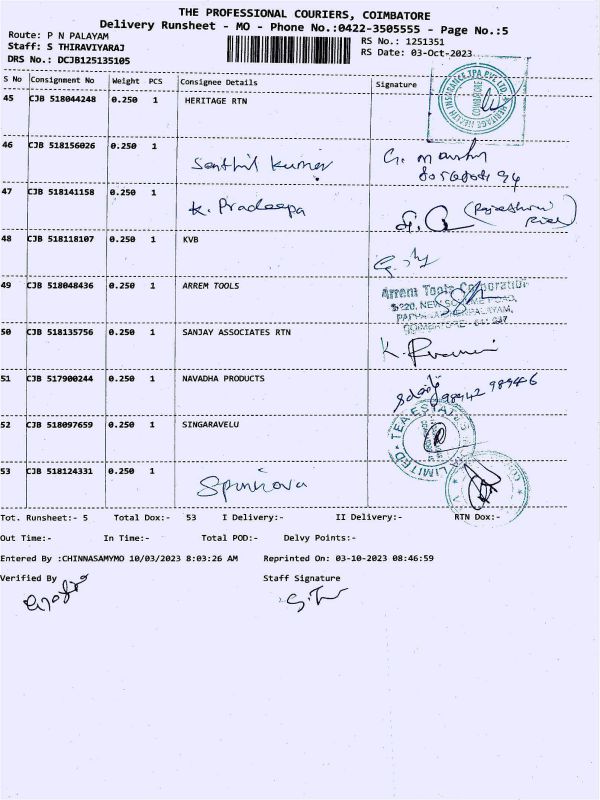 THE PROFESSIONAL COURIERS, COIMBATORE
Delivery Runsheet - MO - Phone No.:0422-3505555 - Page No.:5
Route: P N PALAYAM
Staff: S THIRAVIYARAJ
DRS No.: DCJB125135105
RS No.: 1251351
RS Date: 03-Oct-2023
S No Consignment No Weight PCS Consignee Details Signature
45 CJB 518044248 0.250 1 HERITAGE RTN
HERITAGE HEALTH INSURANCE TPA PVT LTD COIMBATORE
46 CJB 518156026 0.250 1 Senthil Kumar
47 CJB 518141158 0.250 1 K. Pradeepa
48 CJB 518118107 0.250 1 KVB
49 CJB 518048436 0.250 1 ARREM TOOLS
Arrem Tools Corporation
50 CJB 518135756 0.250 1 SANJAY ASSOCIATES RTN
51 CJB 517900244 0.250 1 NAVADHA PRODUCTS
98942 98946
52 CJB 518097659 0.250 1 SINGARAVELU
TEA ESTATES LIMITED
53 CJB 518124331 0.250 1
Tot. Runsheet:- 5 Total Dox:- 53 I Delivery:- II Delivery:- RTN Dox:-
Out Time:- In Time:- Total POD:- Delvy Points:-
Entered By :CHINNASAMYMO 10/03/2023 8:03:26 AM Reprinted On: 03-10-2023 08:46:59
Verified By Staff Signature